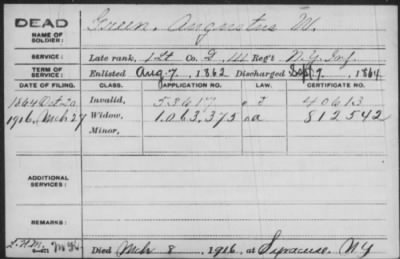 DEAD
NAME OF SOLDIER: Green, Augustus W.
SERVICE: Late rank, 1 Lt Co. D, 111 Reg't N.Y. Inf.
TERM OF SERVICE: Enlisted Aug. 7, 1862 Discharged Sept. 7, 1864
DATE OF FILING. CLASS. APPLICATION NO. LAW. CERTIFICATE NO.
1864 Oct 20 Invalid, 53617 40613
1916, Mch 27 Widow, 1.063.375 812542
Minor,
ADDITIONAL SERVICES:
REMARKS:
Died Mch 8, 1916, at Syracuse, NY